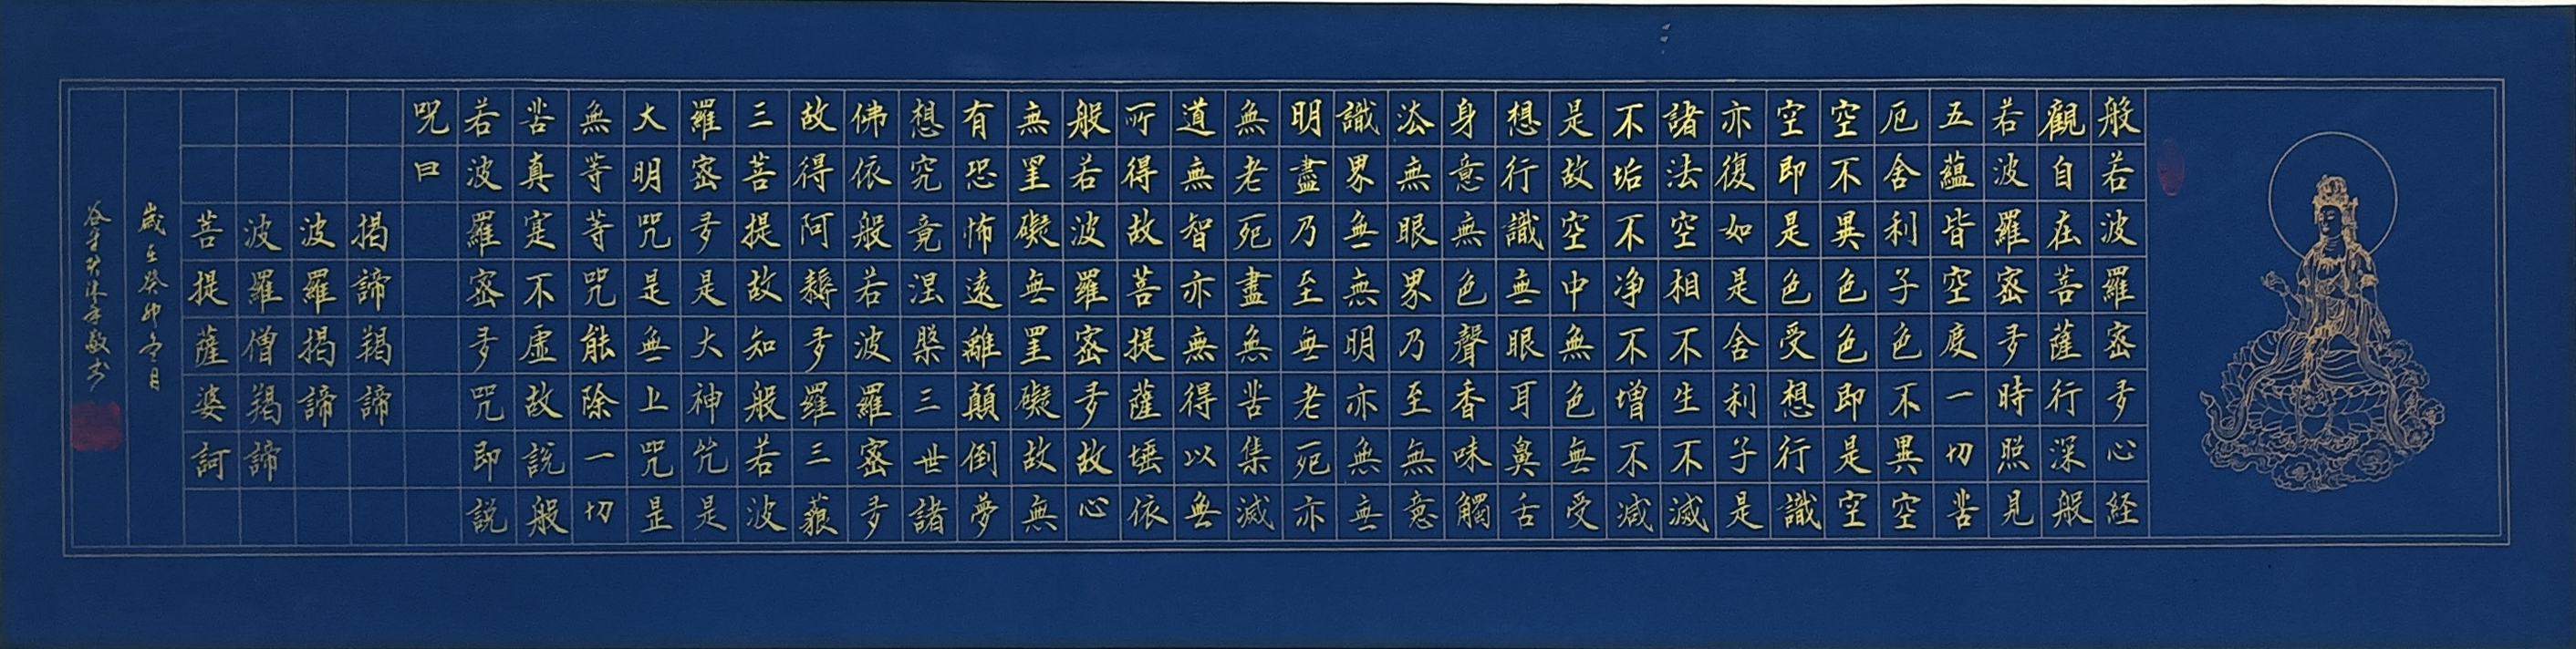 般若波羅密多心経
觀自在菩薩行深般
若波羅密多時照見
五蘊皆空度一切苦
厄舍利子色不異空
空不異色色即是空
空即是色受想行識
亦復如是舍利子是
諸法空相不生不滅
不垢不净不增不减
是故空中無色無受
想行識無眼耳鼻舌
身意無色聲香味觸
法無眼界乃至無意
識界無無明亦無無
明盡乃至無老死亦
無老死盡無苦集滅
道無智亦無得以無
所得故菩提薩埵依
般若波羅密多故心
無罣礙無罣礙故無
有恐怖遠離顛倒夢
想究竟涅槃三世諸
佛依般若波羅密多
故得阿耨多羅三藐
三菩提故知般若波
羅密多是大神咒是
大明咒是無上咒是
無等等咒能除一切
苦真寔不虛故說般
若波羅密多咒即説
咒曰
揭諦羯諦
波羅揭諦
波羅僧羯諦
菩提薩婆訶
歲在癸卯冬月
敬书